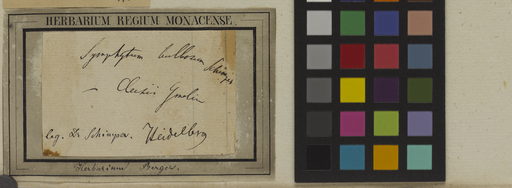 HERBARIUM REGIUM MONACENSE.
Symphytum bulbosum Schimper
– Clusii Gmelin
leg. Dr. Schimper. Heidelberg
Herbarium Berger.